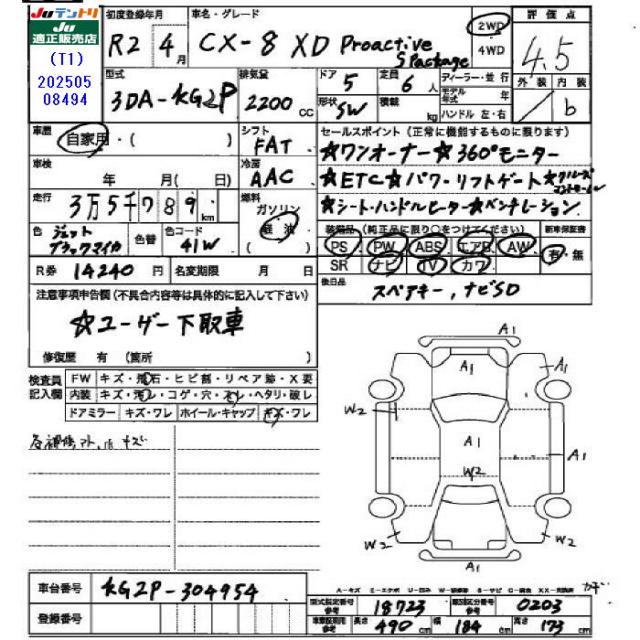 Juテントリ
Ju
適正販売店
(T1)
202505
08494
初度登録年月 R2年 4月
車名・グレード CX-8 XD Proactive S Package
2WD
4WD
評価点 4.5
外装 内装 b
型式 3DA-KG2P
排気量 2200 CC
ドア 5
定員 6人
形状 SW
積載 kg
ディーラー・並行
モデル年式 年
ハンドル 左・右
車歴 自家用・( )
シフト FAT
セールスポイント (正常に機能するものに限ります)
☆ワンオーナー☆360°モニター
☆ETC☆パワーリフトゲート☆クルーズコントロール
☆シート・ハンドルヒーター☆ベンチレーション
車検 年 月( 日)
冷房 AAC
走行 3万5千789km
燃料 ガソリン 軽油 ( )
色 ジェットブラックマイカ
色替
色コード 41W
装備品 (純正品に限り○をつけてください)
新車保証書 有・無
PS PW ABS エアB AW
SR ナビ TV カワ
R券 14240円
名変期限 月 日
後日品 スペアキー,ナビSD
注意事項申告欄(不具合内容等は具体的に記入して下さい)
☆ユーザー下取車
修復歴 有 (箇所 )
検査員記入欄
FW キズ・飛石・ヒビ割・リペア跡・X要
内装 キズ・汚レ・コゲ・穴・スレ・ヘタリ・破レ
ドアミラー キズ・ワレ ホイール・キャップ キズ・ワレ
キズ
A1
A1
A1
W2
A1
A1
W2
W2
W2
A1
車台番号 KG2P-304954
登録番号
A-キズ E-エクボ U-凹み
型式指定番号 参考 18723
類別区分番号 参考 0203
車検証記載 参考 長さ 490cm 幅 184cm 高さ 173cm